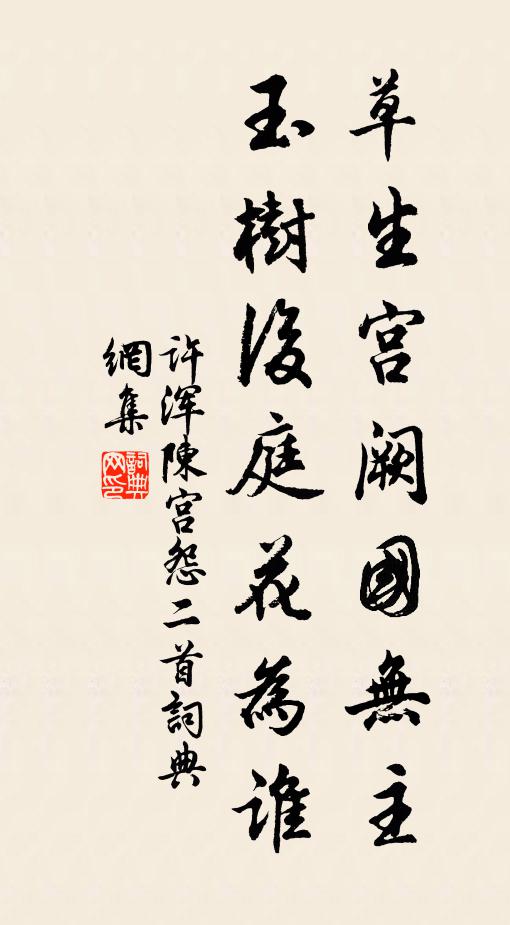 草生宫阙國無主
玉樹後庭花為誰
許渾陳宫怨二首詞典
網集
詞典網印